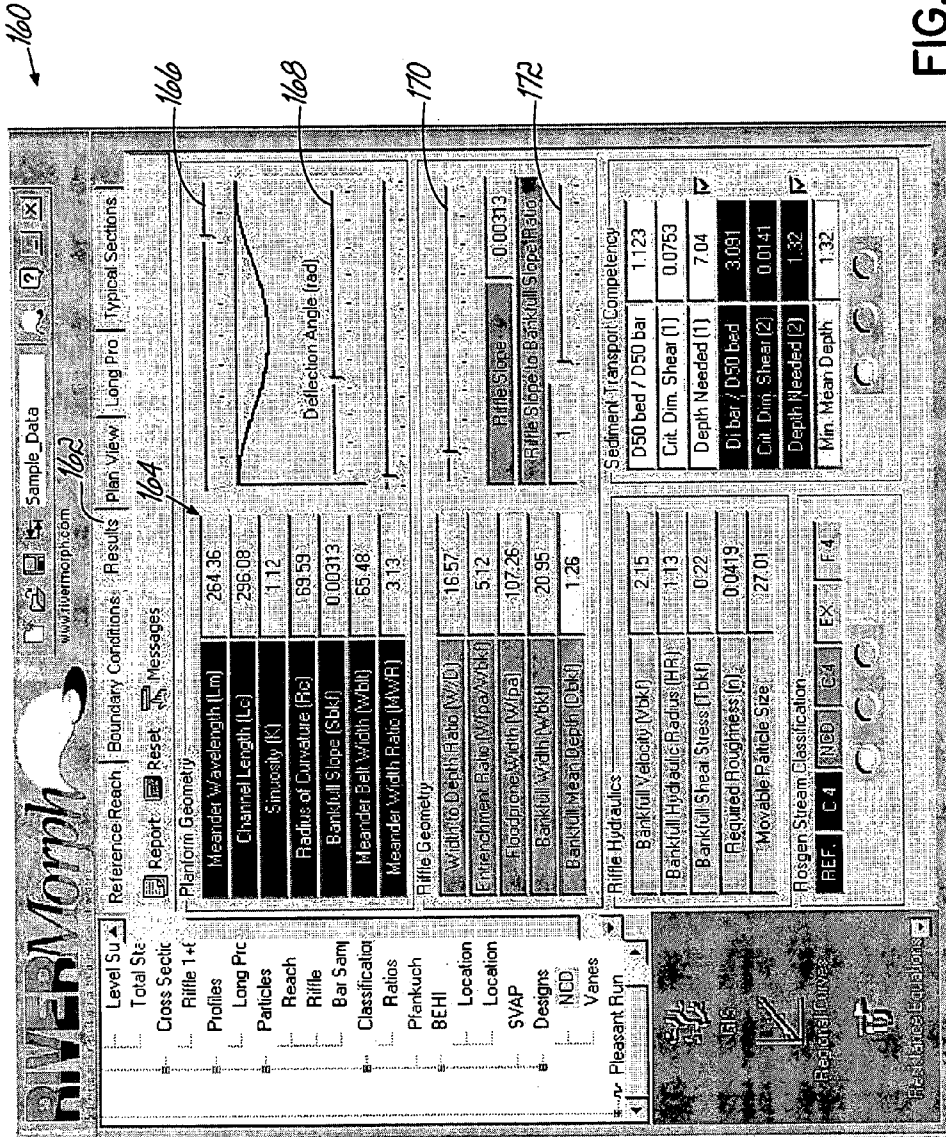 160
RIVERMorph
Sample_Data
www.rivermorph.com
162
Reference Reach Boundary Conditions Results Plan View Long Pro Typical Sections
Report Reset Messages
164
Level Su
Total Sta
Cross Sectio
Riffle 1+
Profiles
Long Pro
Particles
Reach
Riffle
Bar Samp
Classification
Ratios
Pfankuch
BEHI
Location
Location
SVAP
Designs
NCD
Vanes
Pleasant Run
GIS
Regional Curves
Resistance Equations
Planform Geometry
Meander Wavelength (Lm) 264.36
Channel Length (Lc) 296.08
Sinuosity (K) 1.12
Radius of Curvature (Rc) 69.59
Bankfull Slope (Sbkf) 0.00313
Meander Belt Width (Wblt) 65.48
Meander Width Ratio (MWR) 3.13
166
Deflection Angle (rad)
168
Riffle Geometry
Width to Depth Ratio (W/D) 16.57
Entrenchment Ratio (Wfpa/Wbkf) 5.12
Floodprone Width (Wfpa) 107.26
Bankfull Width (Wbkf) 20.95
Bankfull Mean Depth (Dbkf) 1.26
170
Riffle Slope 0.00313
Riffle Slope to Bankfull Slope Ratio
1
172
Riffle Hydraulics
Bankfull Velocity (Vbkf) 2.15
Bankfull Hydraulic Radius (HR) 1.13
Bankfull Shear Stress (Tbkf) 0.22
Required Roughness (n) 0.0419
Movable Particle Size 27.01
Rosgen Stream Classification
REF. C 4 NCD C4 EX F 4
Sediment Transport Competency
D50 bed / D50 bar 1.123
Crit. Dim. Shear (1) 0.0753
Depth Needed (1) 7.04
Di bar / D50 bed 3.091
Crit. Dim. Shear (2) 0.0141
Depth Needed (2) 1.32
Min. Mean Depth 1.32
FIG.